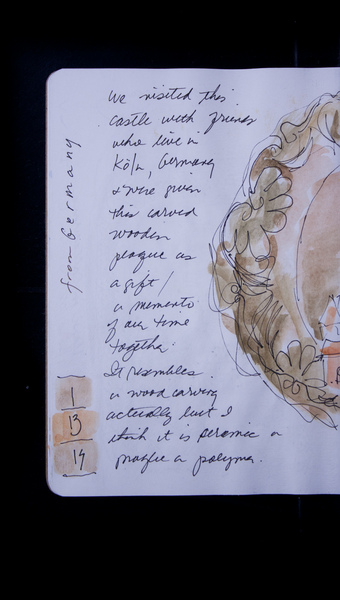 we visited this
castle with friends
who live in
Köln, Germany
& were given
this carved
wooden
plaque as
a gift /
a memento
of our time
together.
It resembles
a wood carving
actually but I
think it is ceramic or
maybe a polymer.
from Germany
1
13
14